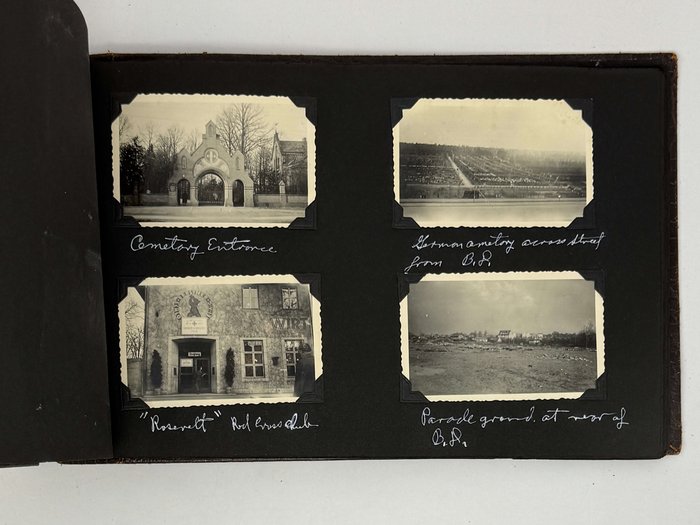 Cemetary Entrance
German cmetory across street
from B.S.
"Rosevelt" Red Cross Club
Parade ground at rear of
B.S.